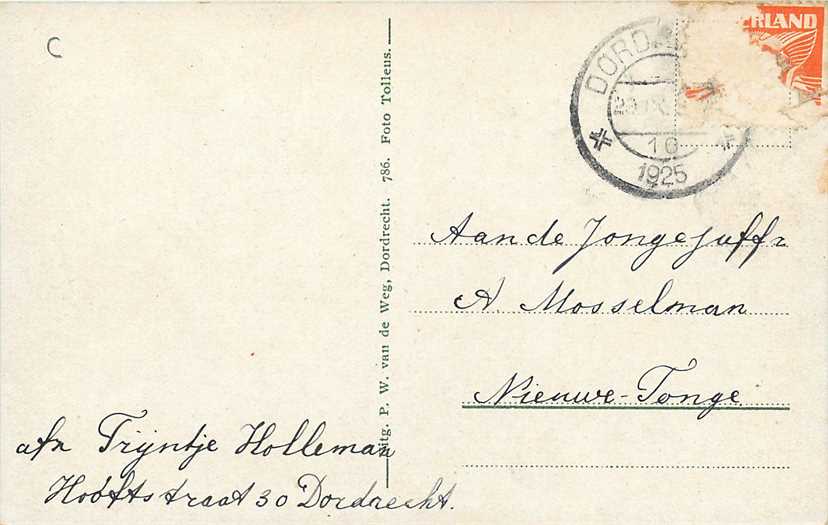 C
Uitg. P. W. van de Weg, Dordrecht. 786. Foto Tolleus.
RLAND
DORD
16
1925
Aan de Jongejuffr
A. Mosselman
Nieuwe-Tonge
afz Trijntje Holleman
Hooftstraat 30 Dordrecht.